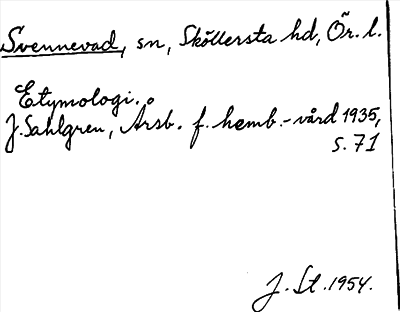 Svennevad, sn, Sköllersta hd, Ör. l.
Etymologi.
J. Sahlgren, Årsb. f. hemb.-vård 1935,
s. 71
J. St. 1954.